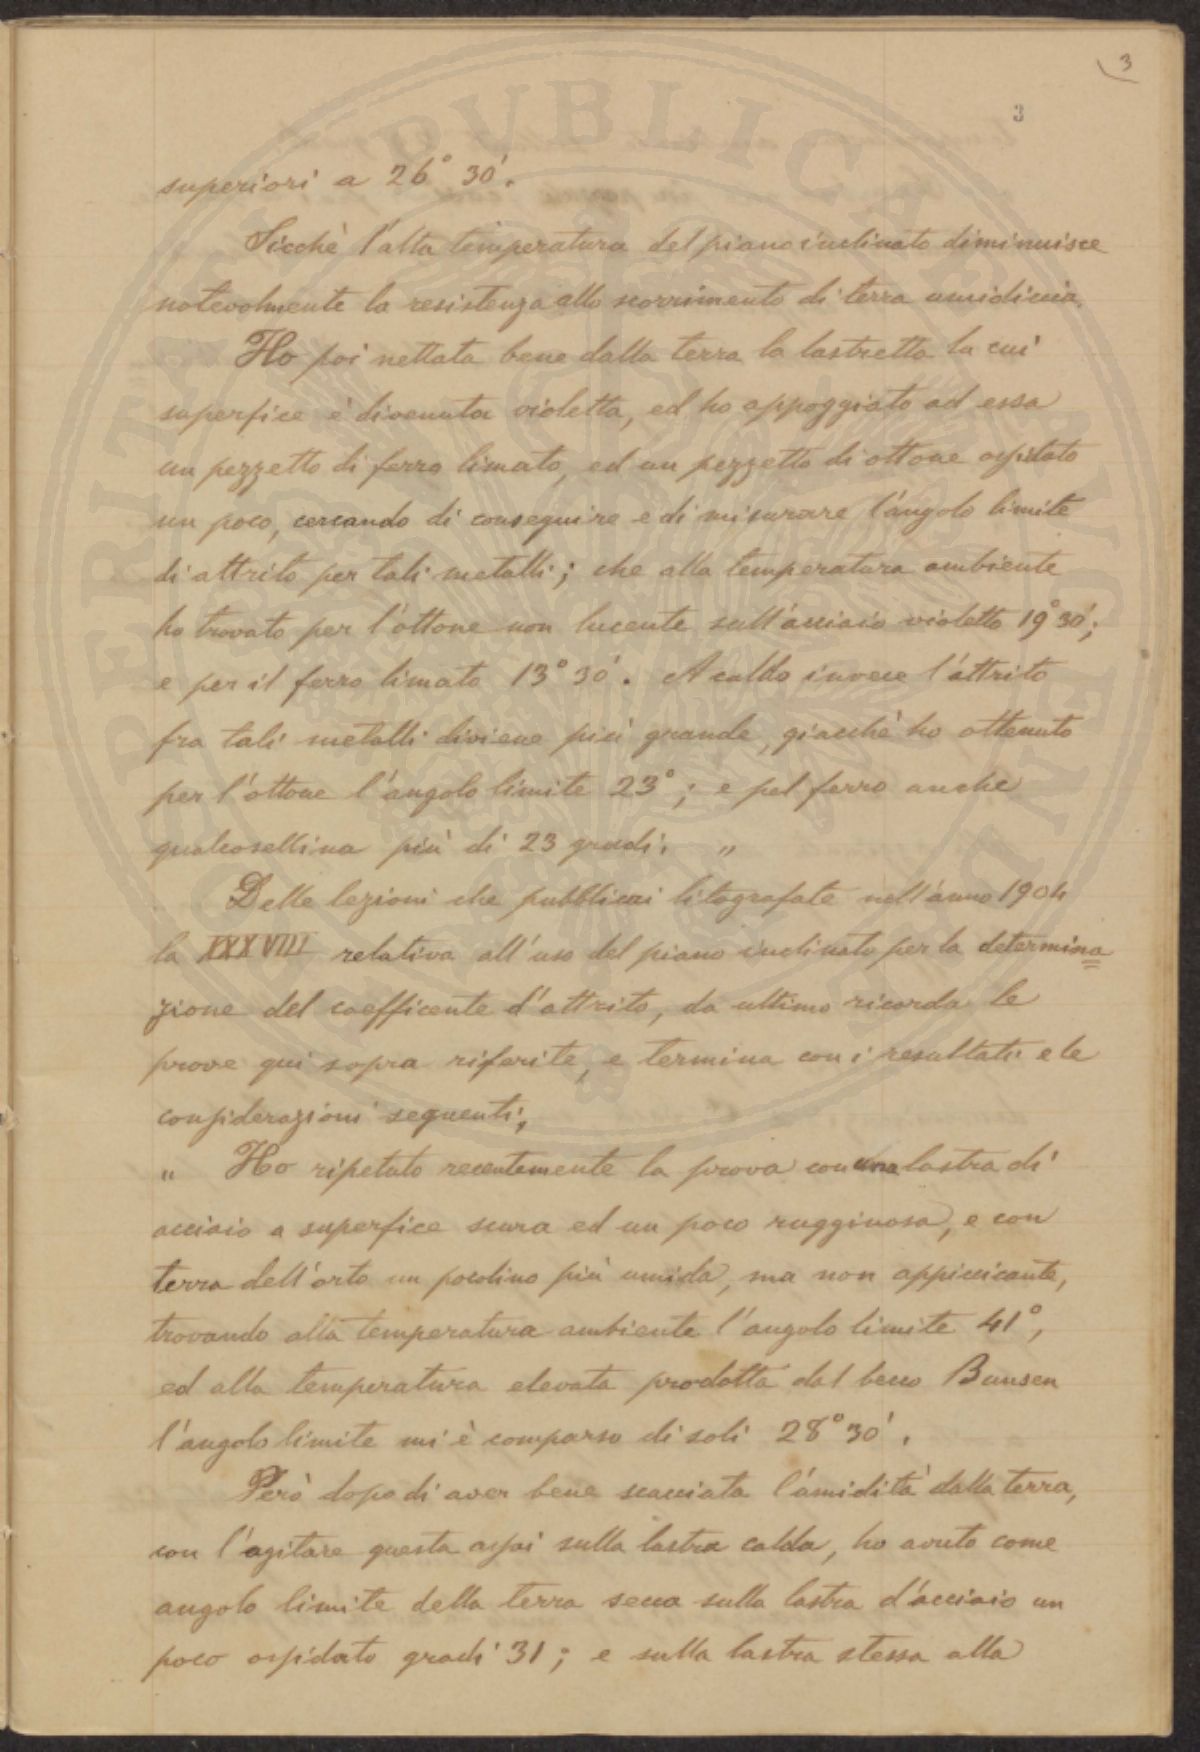 3
3
superiori a 26° 30'.
Sicchè l'alta temperatura del piano inclinato diminuisce
notevolmente la resistenza allo scorrimento di terra umidiccia.
Ho poi nettata bene dalla terra la lastretta la cui
superfice è divenuta violetta, ed ho appoggiato ad essa
un pezzetto di ferro limato, ed un pezzetto di ottone ossidato
un poco, cercando di conseguire e di misurare l'angolo limite
di attrito per tali metalli; che alla temperatura ambiente
ho trovato per l'ottone non lucente sull'acciaio violetto 19° 30';
e per il ferro limato 13° 30'. A caldo invece l'attrito
fra tali metalli diviene più grande, giacchè ho ottenuto
per l'ottone l'angolo limite 23°; e pel ferro anche
qualcosellina più di 23 gradi. "
Delle lezioni che pubblicai litografate nell'anno 1904
la XXXVIII relativa all'uso del piano inclinato per la determina
zione del coefficente d'attrito, da ultimo ricorda le
prove qui sopra riferite, e termina con i resultati e le
considerazioni seguenti;
" Ho ripetuto recentemente la prova con una lastra di
acciaio a superfice scura ed un poco rugginosa, e con
terra dell'orto un pocolino più umida, ma non appiccicante,
trovando alla temperatura ambiente l'angolo limite 41°,
ed alla temperatura elevata prodotta dal becco Bunsen
l'angolo limite mi è comparso di soli 28° 30'.
Però dopo di aver bene scacciata l'umidità dalla terra,
con l'agitare questa assai sulla lastra calda, ho avuto come
angolo limite della terra secca sulla lastra d'acciaio un
poco ossidato gradi 31; e sulla lastra stessa alla